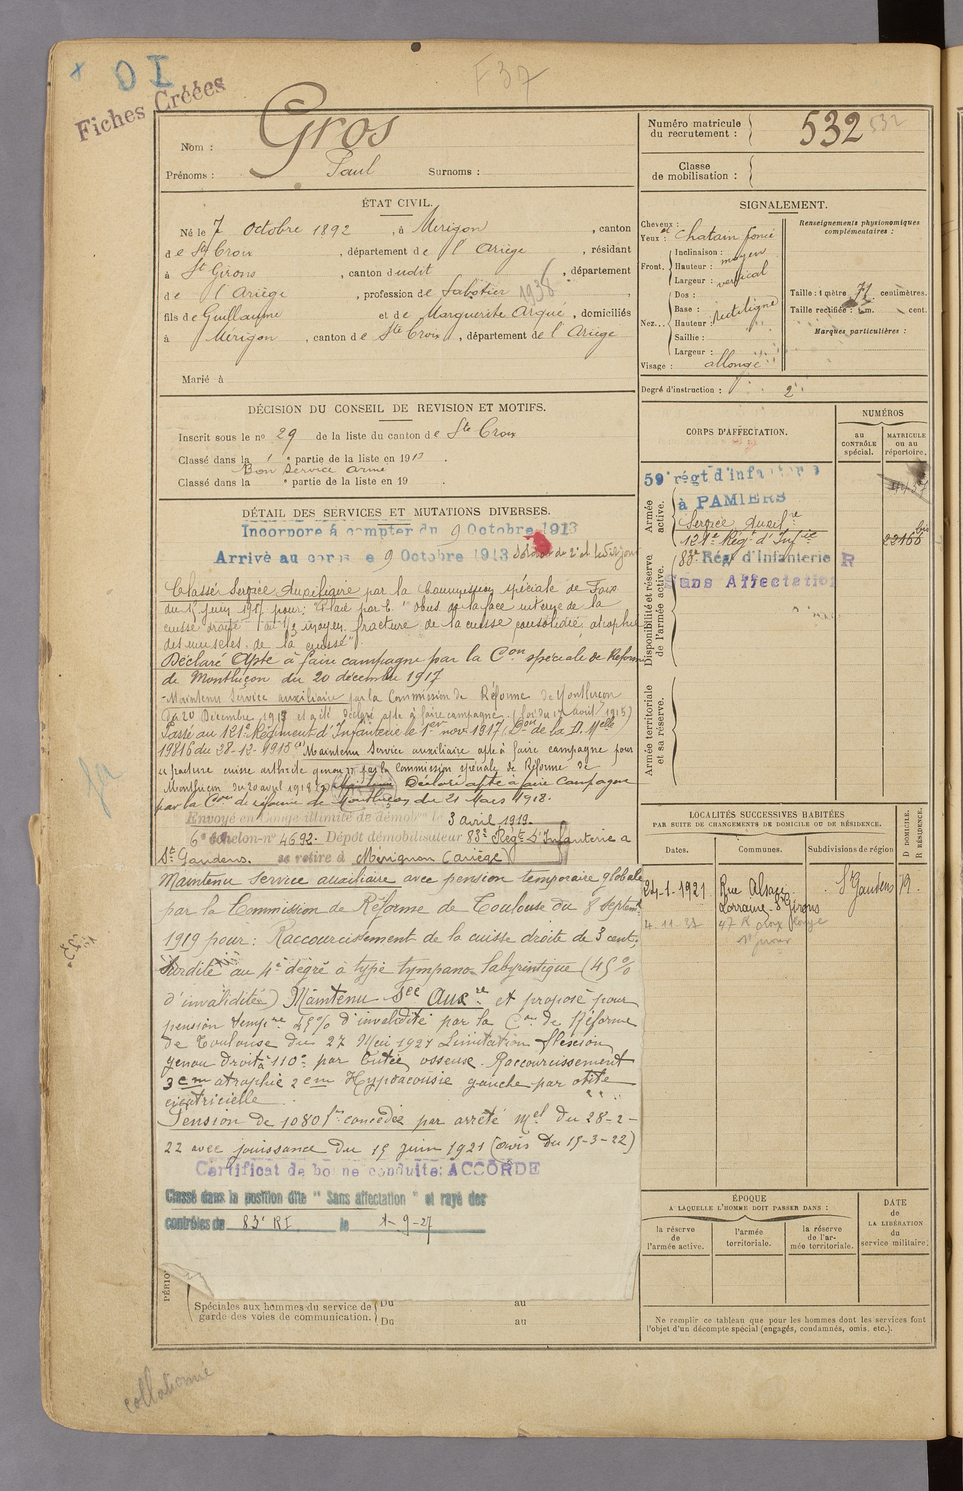 O I
F 37
Fiches Créées
Nom : Gros
Prénoms : Paul Surnoms :
Numéro matricule du recrutement : 532 532
Classe de mobilisation :
ÉTAT CIVIL.
Né le 7 Octobre 1892, à Mérigon, canton
de Ste Croix, département de l'Ariège, résidant
à St Girons, canton dudit, département
de l'Ariège, profession de Sabotier 1938
fils de Guillaume et de Marguerite Argué, domiciliés
à Mérigon, canton de Ste Croix, département de l'Ariège
Marié à
SIGNALEMENT.
Cheveux : et
Yeux : chatain foncé
Front. Inclinaison : moyen
Hauteur :
Largeur : vertical
Nez... Dos :
Base : rectiligne
Hauteur :
Saillie :
Largeur :
Visage : allongé
Renseignements physionomiques complémentaires :
Taille : 1 mètre 71 centimètres.
Taille rectifiée : 1 m. cent.
Marques particulières :
Degré d'instruction : 2
DÉCISION DU CONSEIL DE REVISION ET MOTIFS.
Inscrit sous le no 29 de la liste du canton de Ste Croix
Classé dans la 1e partie de la liste en 1913
Bon Service armé
Classé dans la e partie de la liste en 19
DÉTAIL DES SERVICES ET MUTATIONS DIVERSES.
Incorporé à compter du 9 Octobre 1913
Arrivé au corps le 9 Octobre 1913 Soldat de 2e cl. le dit jour
Classé Service Auxiliaire par la Commission spéciale de Foix
du 15 juin 1917 pour : "Plaie par E. "Obus" de la face interne de la
cuisse droite au 1/3 moyen, fracture de la cuisse consolidée, atrophie
des muscles de la cuisse"
Déclaré Apte à faire campagne par la Con spéciale de Réforme
de Montluçon du 20 décembre 1917
Maintenu Service auxiliaire par la Commission de Réforme de Montluçon
du 20 Décembre 1917 et a été déclaré apte à faire campagne. (Loi du 17 Avril 1915)
Passé au 121e Régiment d'Infanterie le 1er nov 1917 (Don de la D. Melle
19816 du 28-12-1915) Maintenu Service auxiliaire apte à faire campagne pour
fracture cuisse arthrite genou par la Commission spéciale de Réforme de
Montluçon du 20 avril 1918 Déclaré apte à faire Campagne
par la Con de réforme de Montluçon du 21 Mars 1918.
Envoyé en congé illimité de démobon le 3 avril 1919.
6e échelon-no 4692- Dépôt démobilisateur 83e Régt d'Infanterie à
St Gaudens. se retire à Mérignon (Ariège)
Maintenu service auxiliaire avec pension temporaire globale
par la Commission de Réforme de Toulouse du 8 septembre
1919 pour : Raccourcissement de la cuisse droite de 3 cent;
surdité au 4e degré à type tympano labyrintique (45%
d'invalidité) Maintenu Sce Auxre et proposé pour
pension tempre 45% d'invalidité par la Con de Réforme
de Toulouse du 27 Mai 1921 Limitation flexion
genou droit à 110° par butée osseuse. Raccourcissement
3 cm atrophie 2 cm Hypoacousie gauche par otite
cicatricielle.
Pension de 1080 frs concédée par arrêté mel du 28-2-
22 avec jouissance du 15 Juin 1921 (avis du 15-3-22)
Certificat de bonne conduite: ACCORDÉ
Classé dans la position dite " Sans affectation " et rayé des
contrôles du 83e RI le 1-9-27
PÉRIO
Spéciales aux hommes du service de garde des voies de communication. Du au
Du au
CORPS D'AFFECTATION.
NUMÉROS
au CONTRÔLE spécial.
MATRICULE ou au répertoire.
Armée active.
59e régt d'infanterie
à PAMIERS
Service Auxilre
121e Régt d'Infie
Disponibilité et réserve de l'armée active.
83e Régt d'Infanterie R
Sans Affectation
Armée territoriale et sa réserve.
LOCALITÉS SUCCESSIVES HABITÉES
PAR SUITE DE CHANGEMENTS DE DOMICILE OU DE RÉSIDENCE.
Dates. Communes. Subdivisions de région D DOMICILE. R RÉSIDENCE.
24-1-1921 Rue Alsace Lorraine St Girons St Gaudens
ÉPOQUE
A LAQUELLE L'HOMME DOIT PASSER DANS :
la réserve de l'armée active.
l'armée territoriale.
la réserve de l'armée territoriale.
DATE de LA LIBÉRATION du service militaire.
Ne remplir ce tableau que pour les hommes dont les services font
l'objet d'un décompte spécial (engagés, condamnés, omis, etc.).
collationné